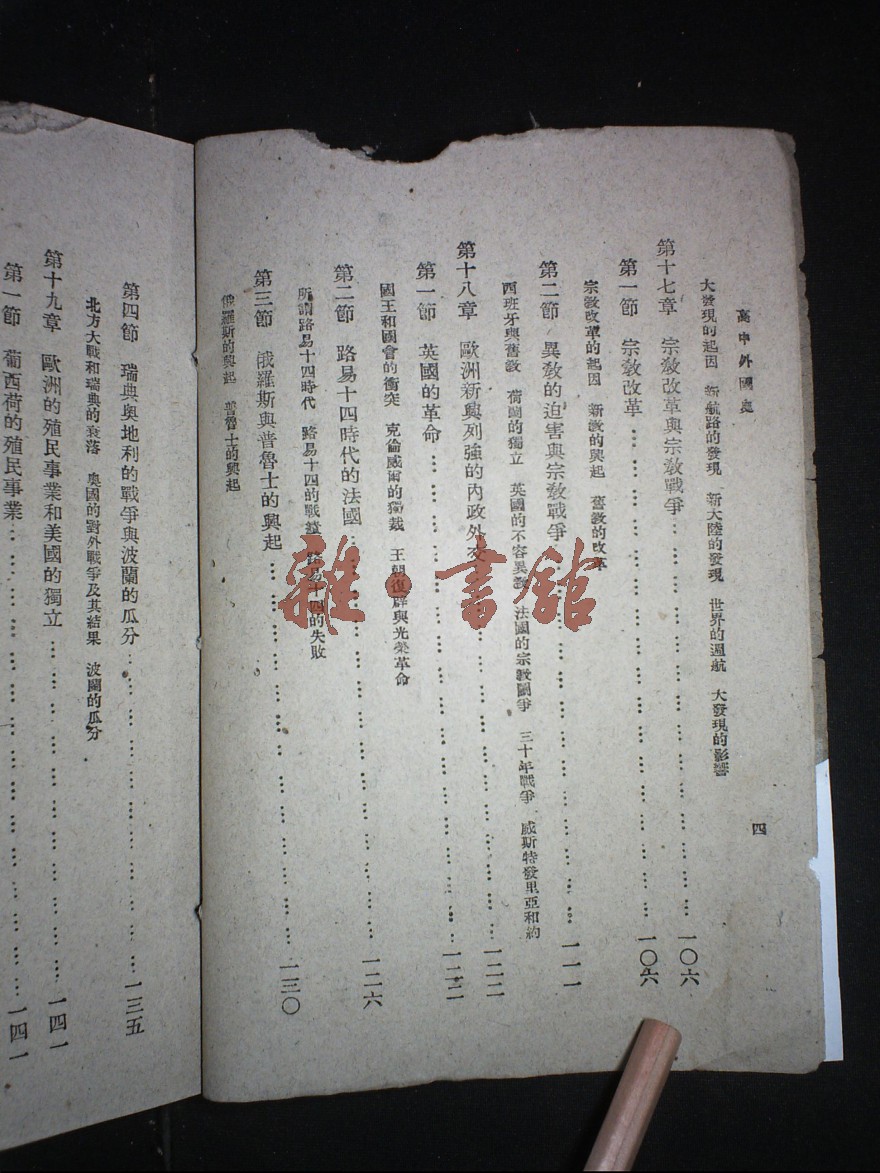 高中外國史
四
大發現的起因 新航路的發現 新大陸的發現 世界的週航 大發現的影響
第十七章 宗教改革與宗教戰爭……一〇六
第一節 宗教改革……一〇六
宗教改革的起因 新教的興起 舊教的改革
第二節 異教的迫害與宗教戰爭……一一一
西班牙與舊教 荷蘭的獨立 英國的不容異教 法國的宗教鬭爭 三十年戰爭 威斯特發里亞和約
第十八章 歐洲新興列強的內政外交……一二二
第一節 英國的革命……一二二
國王和國會的衝突 克倫威爾的獨裁 王朝復辟與光榮革命
第二節 路易十四時代的法國……一二六
所謂路易十四時代 路易十四的戰爭 路易十四的失敗
第三節 俄羅斯與普魯士的興起……一三〇
俄羅斯的興起 普魯士的興起
第四節 瑞典奧地利的戰爭與波蘭的瓜分……一三五
北方大戰和瑞典的衰落 奧國的對外戰爭及其結果 波蘭的瓜分
第十九章 歐洲的殖民事業和美國的獨立……一四一
第一節 葡西荷的殖民事業……一四一
雜·書館